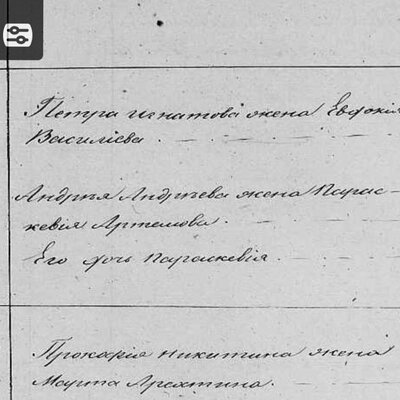 Петра Игнатова жена Евфокія
Василіева
Андрѣя Андрѣева жена Парас-
кевія Артемова
Его дочь Параскевія.
Прокофія Никитина жена
Марта